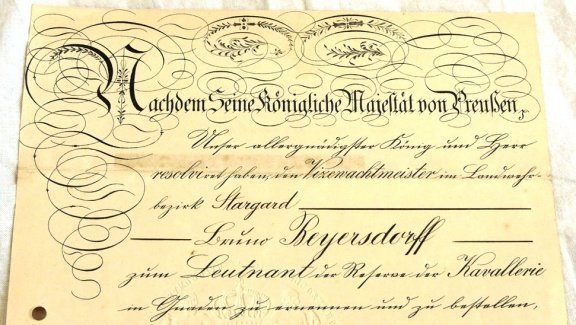 Nachdem Seine Königliche Majestät von Preußen,
Unser allergnädigster König und Herr
resolviret haben, den Vizewachtmeister im Landwehr-
bezirk Stargard
Bruno Beyersdorff
zum Leutnant der Reserve der Kavallerie
in Gnaden zu ernennen und zu bestellen,